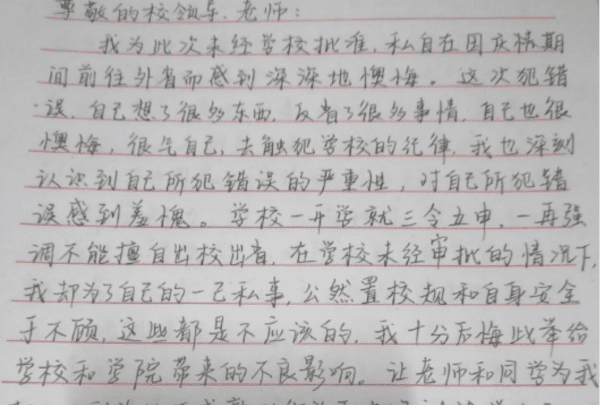 尊敬的校领导、老师：
我为此次未经学校批准，私自在国庆情期
间前往外省而感到深深地懊悔。这次犯错
误，自己想了很多东西，反省了很多事情，自己也很
懊悔，很气自己，去触犯学校的纪律，我也深刻
认识到自己所犯错误的严重性，对自己所犯错
误感到羞愧。学校一开学就三令五申，一再强
调不能擅自出校出省，在学校未经审批的情况下，
我却为了自己的一己私事，公然置校规和自身安全
于不顾，这些都是不应该的，我十分后悔此举给
学校和学院带来的不良影响。让老师和同学为我